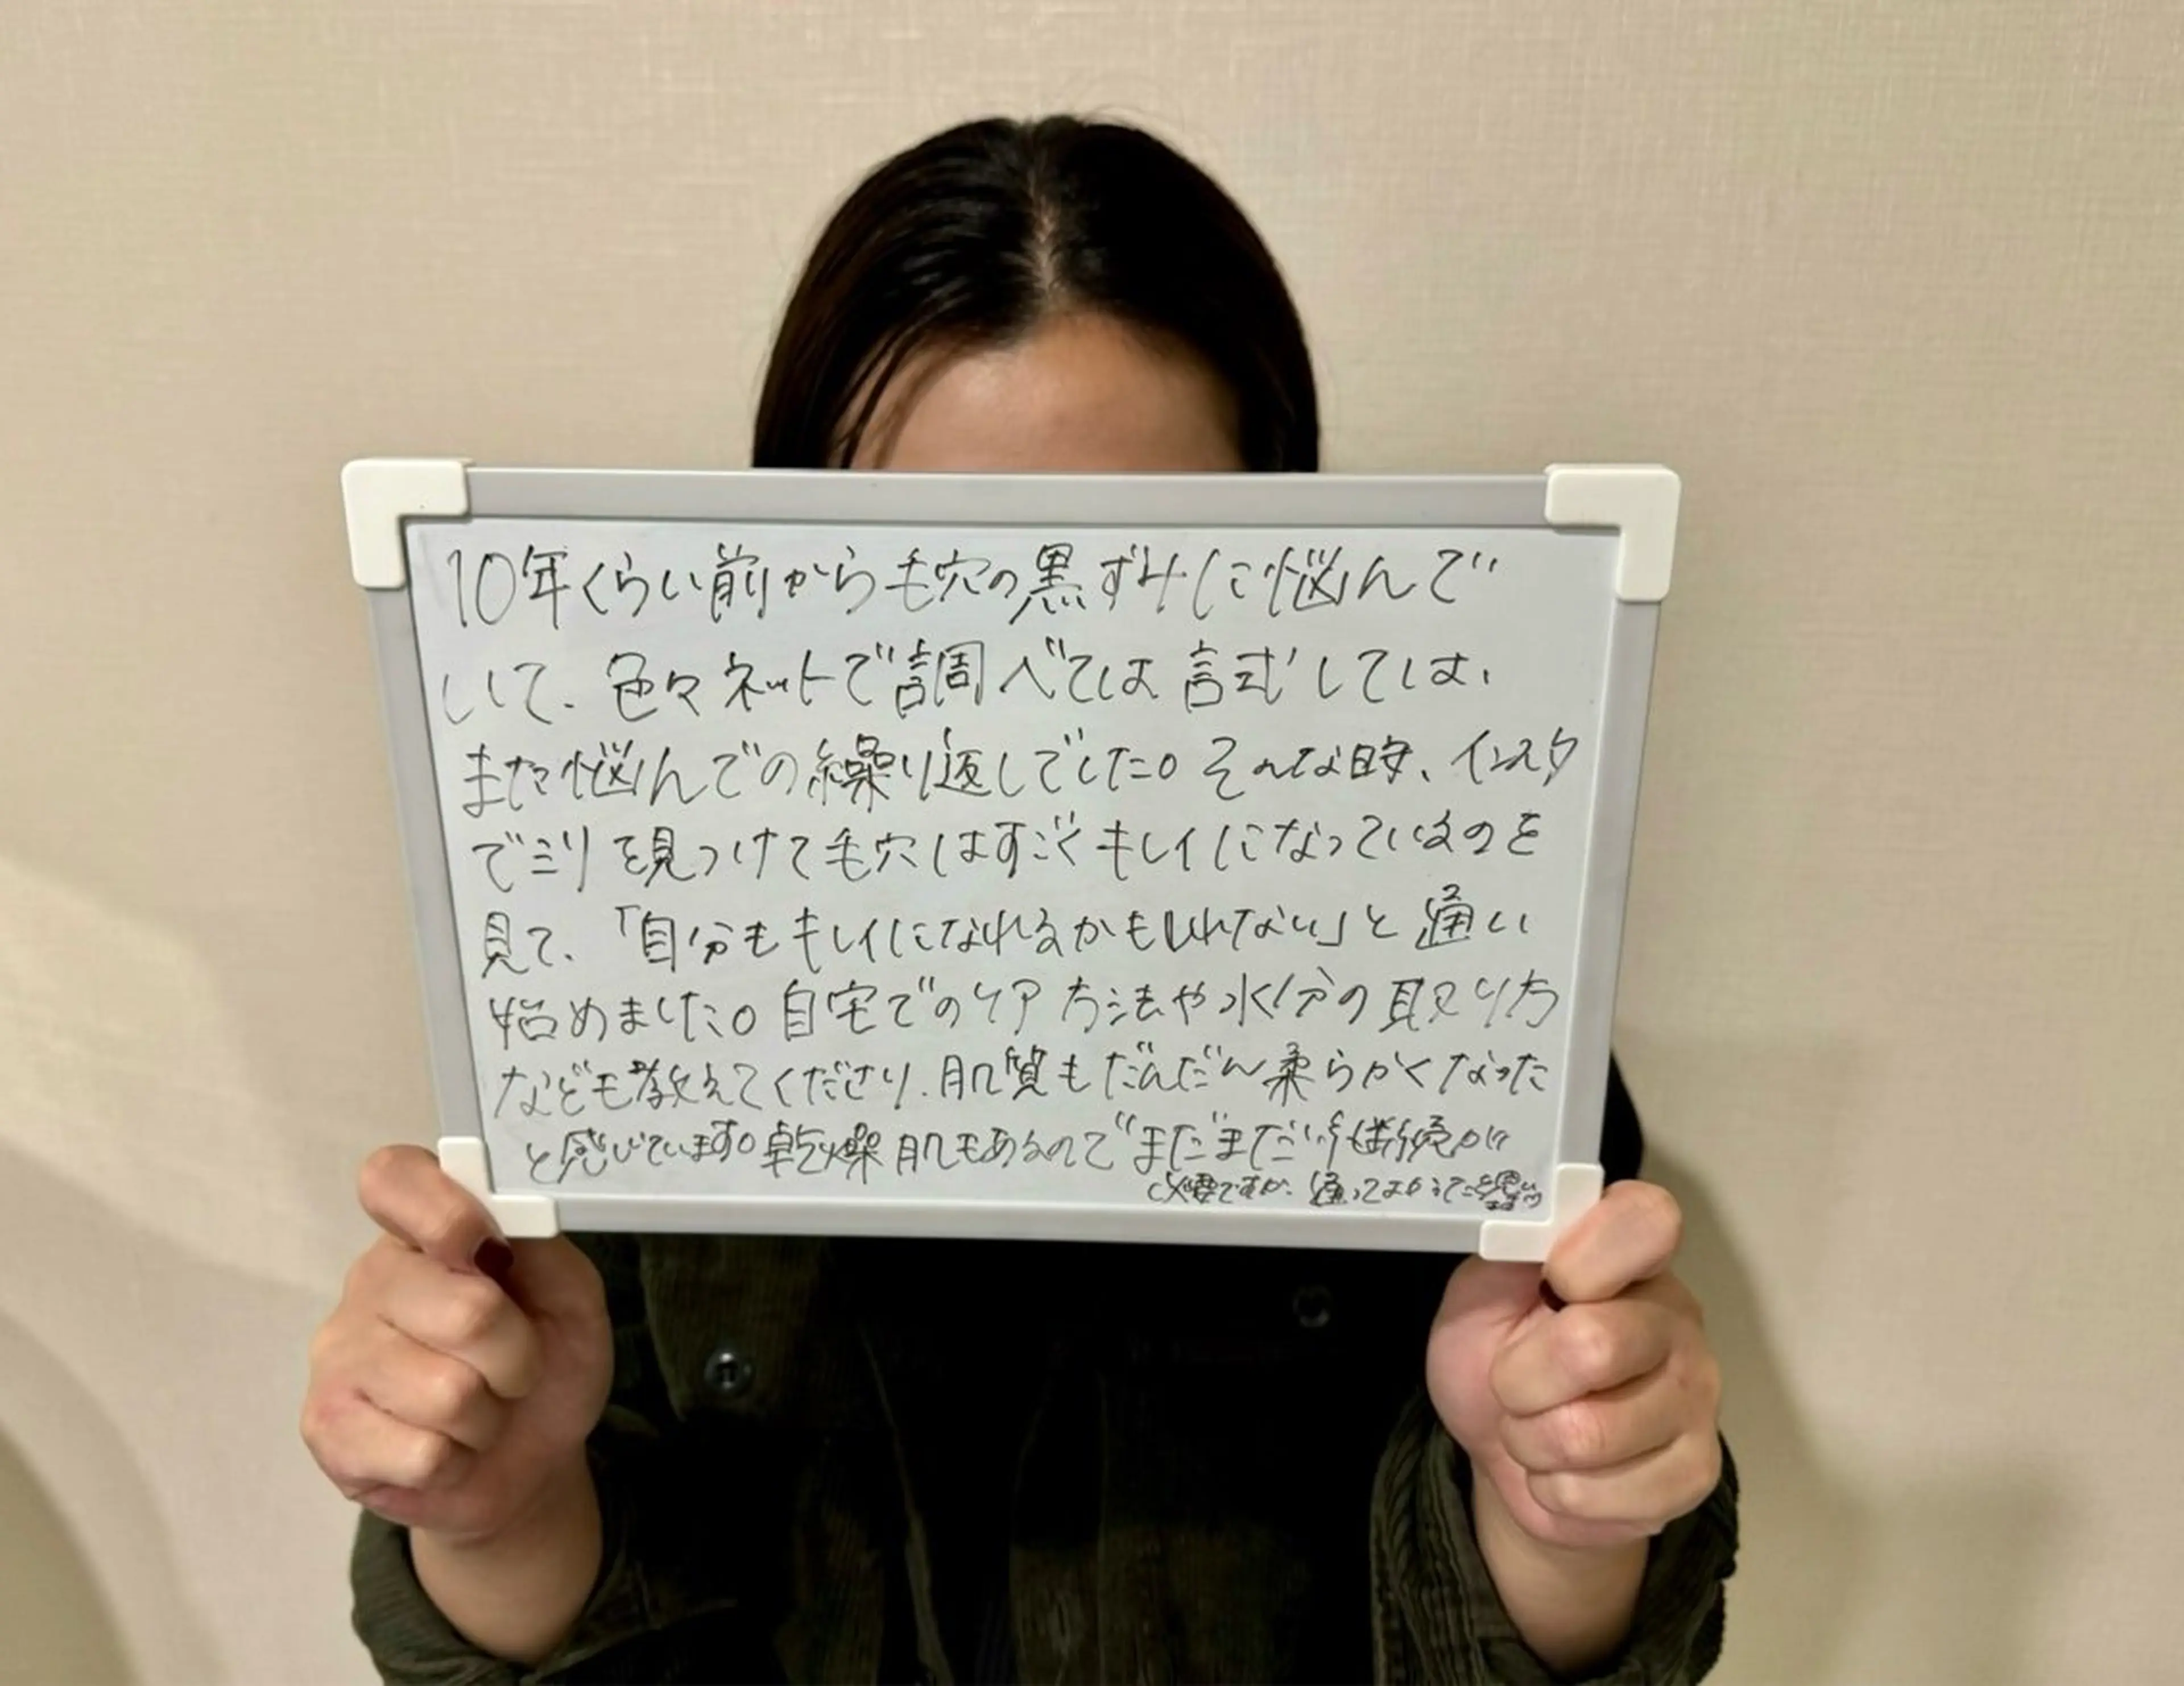 10年くらい前から毛穴の黒ずみに悩んで
いて、色々ネットで調べては試しては、
また悩んでの繰り返しでした。そんな時、インスタ
でミリを見つけて毛穴はすごくキレイになっているのを
見て、「自分もキレイになれるかもしれない」と通い
始めました。自宅でのケア方法や水分の取り方
なども教えてくださり、肌質もだんだん柔らかくなった
と感じています。乾燥肌もあるのでまだまだ継続が
必要ですが、通ってよかったと思います